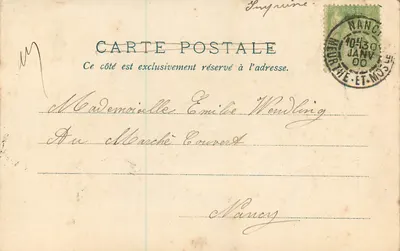 Imprimé
NANCY
10H30
JANV
00
MEURTHE-ET-MOSELLE
CARTE POSTALE
Ce côté est exclusivement réservé à l'adresse.
Mademoiselle Emilie Wendling
Au Marché Couvert
Nancy